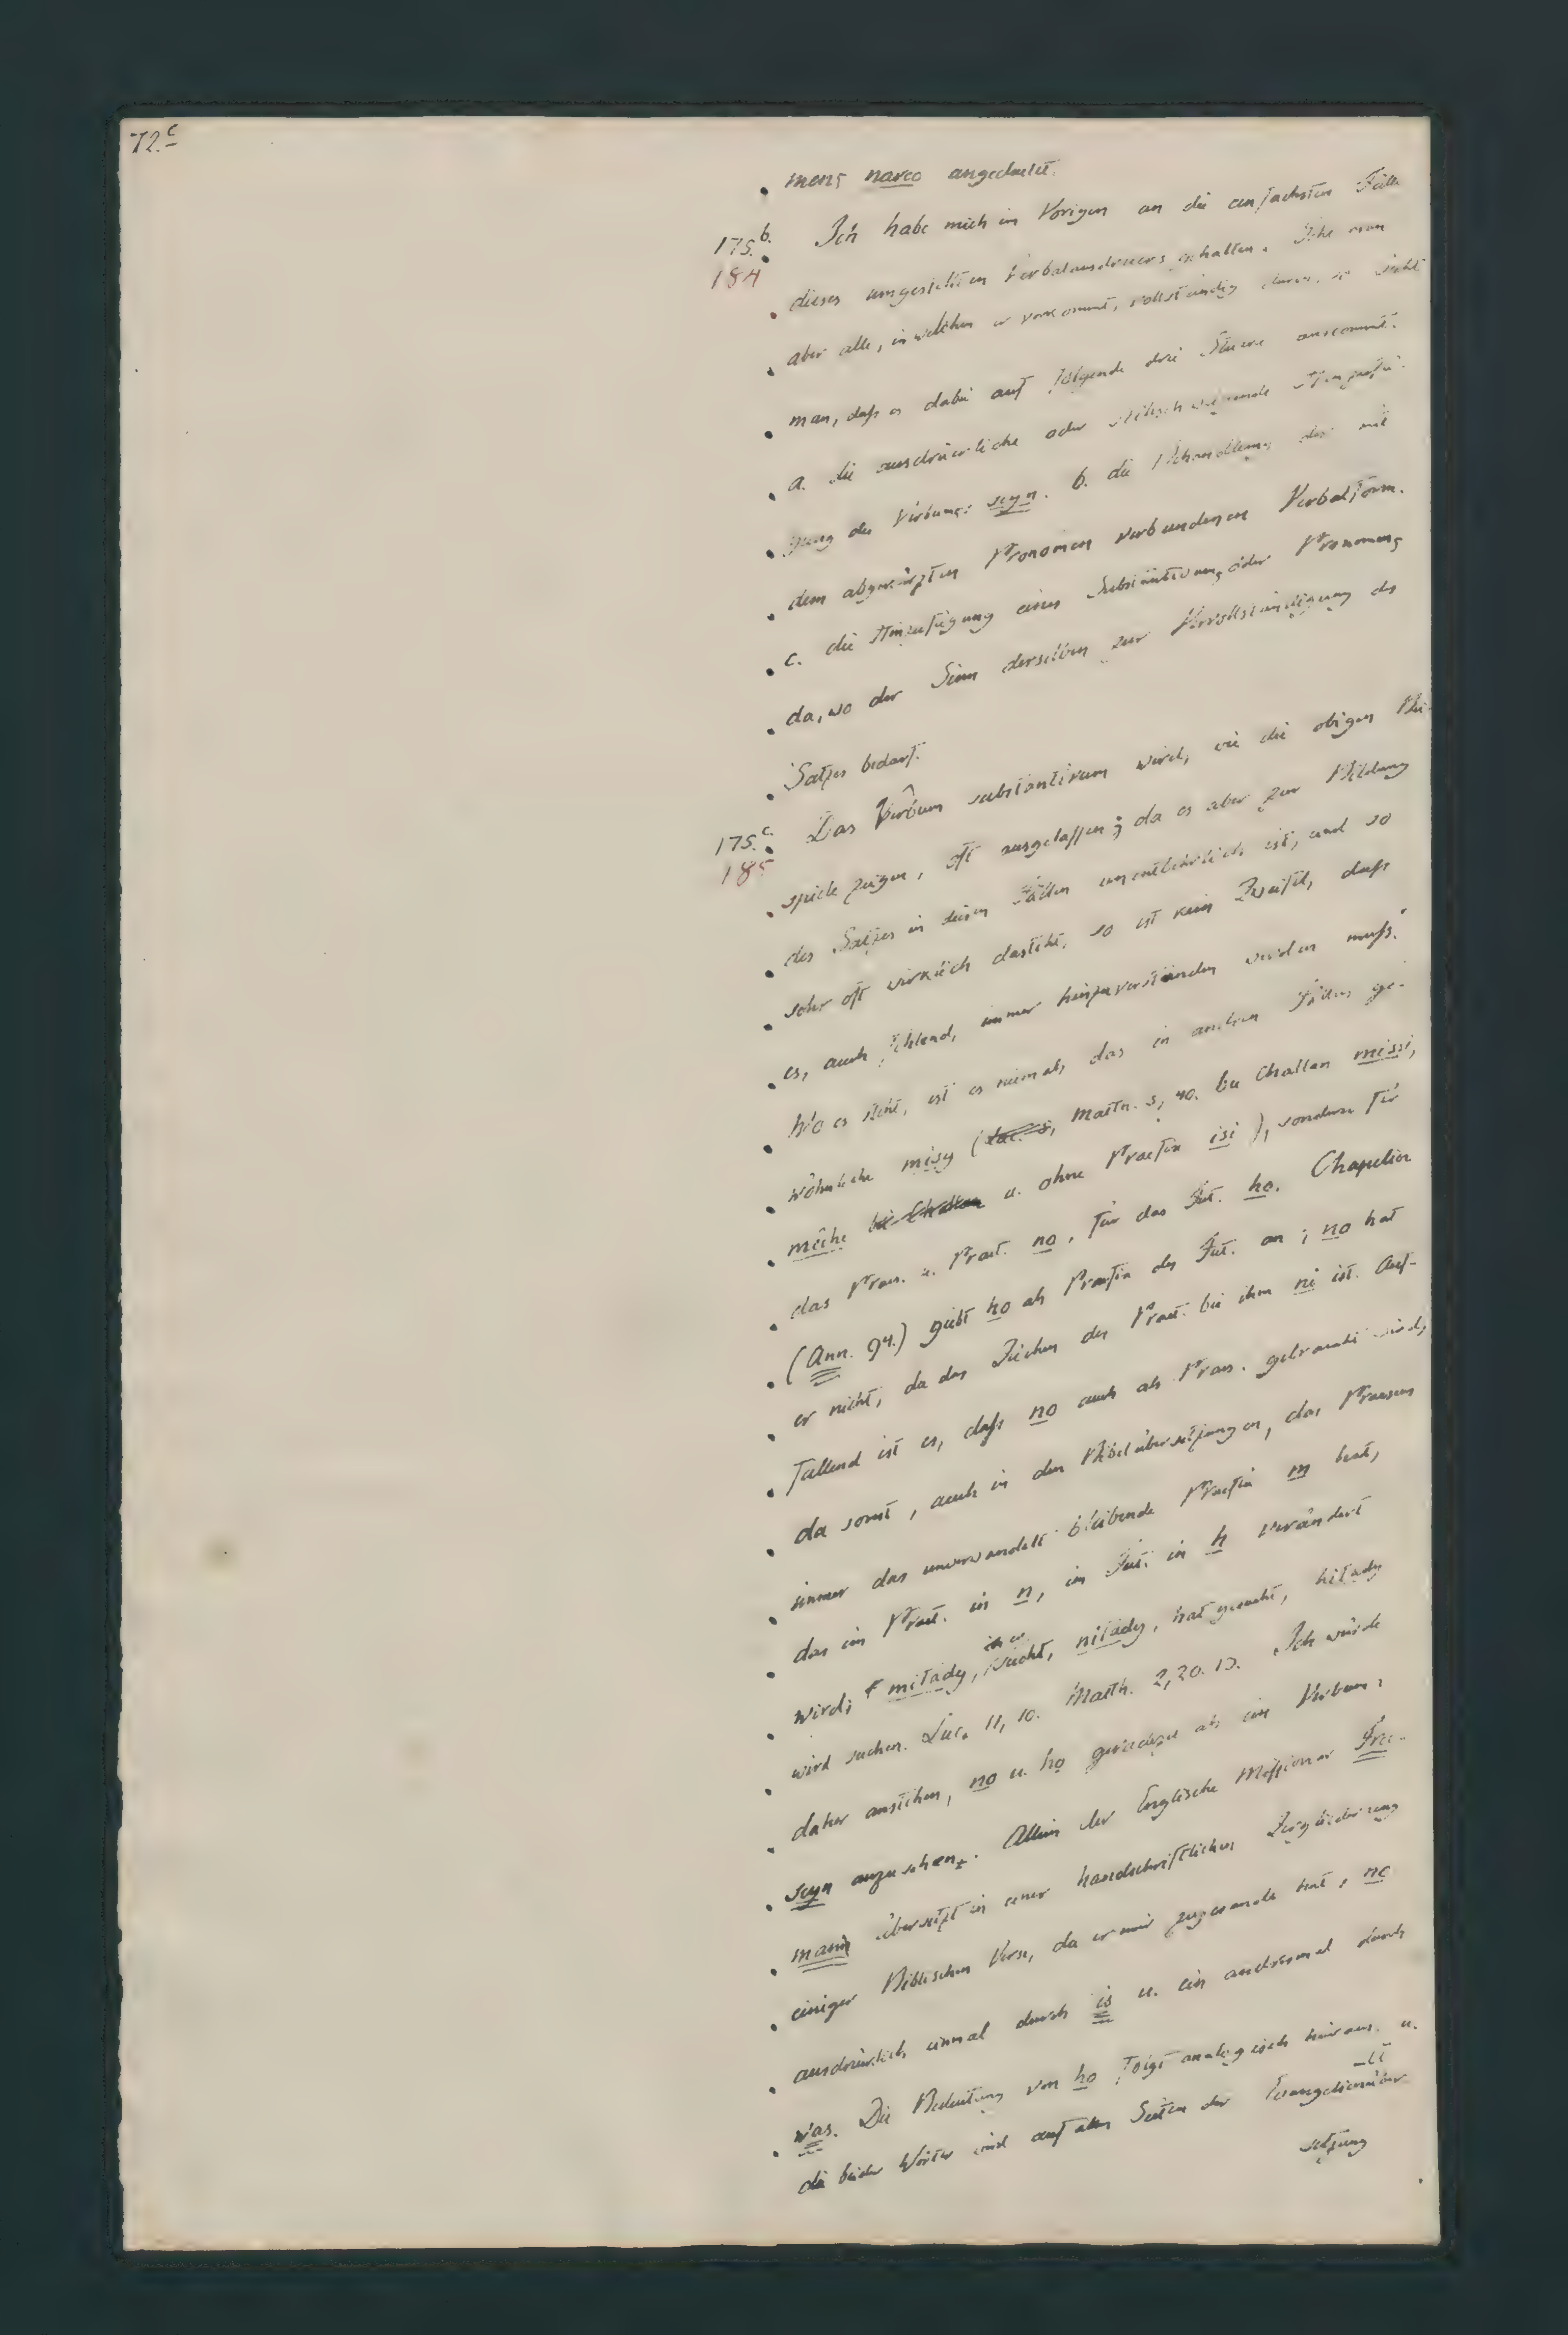 72.c
mens nareo angedeutet.
175.b. Ich habe mich im Vorigen an die einfachsten Fälle
184
dieses umgestellten Verbalausdrucks gehalten. Geht man
aber alle, in welchen er vorkommt, vollständig durch, so sieht
man, dass es dabei auf folgende drei Stücke ankommt.
a. die ausdrückliche oder stillschweigende Hinzufü-
gung des Verbums seyn. b. die Behandlung der mit
dem abgekürzten Pronomen verbundenen Verbalform.
c. die Hinzufügung eines Substantivums oder Pronomens
da, wo der Sinn derselben zur Vervollständigung des
Satzes bedarf.
175.c. Das Verbum substantivum wird, wie die obigen Bei-
185
spiele zeigen, oft ausgelassen; da es aber zur Bildung
des Satzes in diesen Fällen unentbehrlich ist, und so
sehr oft wirklich dasteht, so ist kein Zweifel, dass
es, auch fehlend, immer hinzuverstanden werden muss.
Wo es steht, ist es niemals das in andren Fällen ge-
wöhnliche misy (Luc. 5, Matth. 5, 40. bei Challan missi,
mêche bei Challan u. ohne Praefix isi), sondern für
das Praes. u. Praet. no, für das Fut. ho. Chapelier
(Ann. 94.) giebt ho als Praefix des Fut. an; no hat
er nicht, da das Zeichen des Praet. bei ihm ni ist. Auf-
fallend ist es, dass no auch als Praes. gebraucht wird,
da sonst, auch in den Bibelübersetzungen, das Praesens
immer das unverwandelt bleibende Praefix m hat,
das im Praet. in n, im Fut. in h verändert
wird; mitady, sucht, nitady, hat gesucht, hitady
wird suchen. Luc. 11, 10. Matth. 2, 20. 13. Ich würde
daher anstehen, no u. ho geradezu als ein Verbum
seyn anzusehen. Allein der Englische Missionar Free-
mann übersetzt in einer handschriftlichen Zergliederung
einiger Biblischen Verse, die er mir zugesandt hat, no
ausdrücklich einmal durch is u. ein andresmal durch
was. Die Bedeutung von ho folgt analogisch hieraus, u.
die beiden Wörter sind auf allen Seiten der Evangelienüber-
setzung